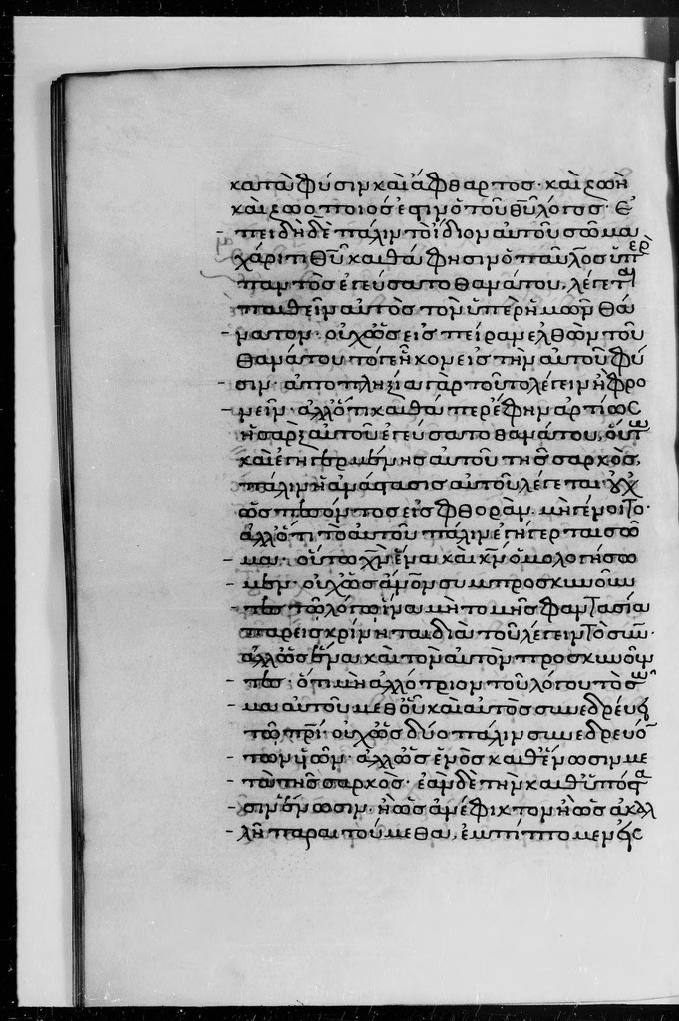 κατὰ φύσιν καὶ ἄφθαρτος· καὶ ζωὴ
καὶ ζωοποιός ἐστιν ὁ τοῦ θῦ λόγος· ἐ
πειδὴ δὲ πάλιν τὸ ἴδιον αὐτοῦ σῶμα
χάριτι θῦ καθά φησιν ὁ παῦλος ὑπὲρ
παντὸς ἐγεύσατο θανάτου, λέγεται
παθεῖν αὐτὸς τὸν ὑπὲρ ἡμῶν θά
νατον· οὐχ ὡς εἰς πεῖραν ἐλθὼν τοῦ
θανάτου τό γε ἧκον εἰς τὴν αὐτοῦ φύ
σιν· ἀποπληξία γὰρ τοῦτο λέγειν ἢ φρο
νεῖν· ἀλλ' ὅτι καθάπερ ἔφην ἀρτίως
ἡ σὰρξ αὐτοῦ ἐγεύσατο θανάτου, οὕτως
καὶ ἐγηγερμένης αὐτοῦ τῆς σαρκὸς,
πάλιν ἡ ἀνάστασις αὐτοῦ λέγεται· οὐχ
ὡς πεσόντος εἰς φθοράν. μὴ γένοιτο·
ἀλλ' ὅτι τὸ αὐτοῦ πάλιν ἐγήγερται σῶ
μα· οὕτω χν ἕνα καὶ κν ὁμολογήσω
μεν· οὐχ ὡς ανον συμπροσκυνοῦν
τες τῷ λόγῳ ἵνα μὴ τομῆς φαντασία
παρεισκρίνηται διὰ τοῦ λέγειν τὸ σύν·
ἀλλ' ὡς ἕνα καὶ τὸν αὐτὸν προσκυνοῦν
τες· ὅτι μὴ ἀλλότριον τοῦ λόγου τὸ σῶ
μα αὐτοῦ μεθ' οὗ καὶ αὐτὸς συνεδρεύει
τῷ πρί· οὐχ ὡς δύο πάλιν συνεδρευόν
των υἱῶν· ἀλλ' ὡς ἑνὸς καθ' ἕνωσιν με
τὰ τῆς σαρκός· ἐὰν δὲ τὴν καθ' ὑπόστα
σιν ἕνωσιν· ἢ ὡς ἀνέφικτον ἢ ὡς ἀκαλ
λῆ παραιτούμεθα, ἐμπίπτομεν εἰς